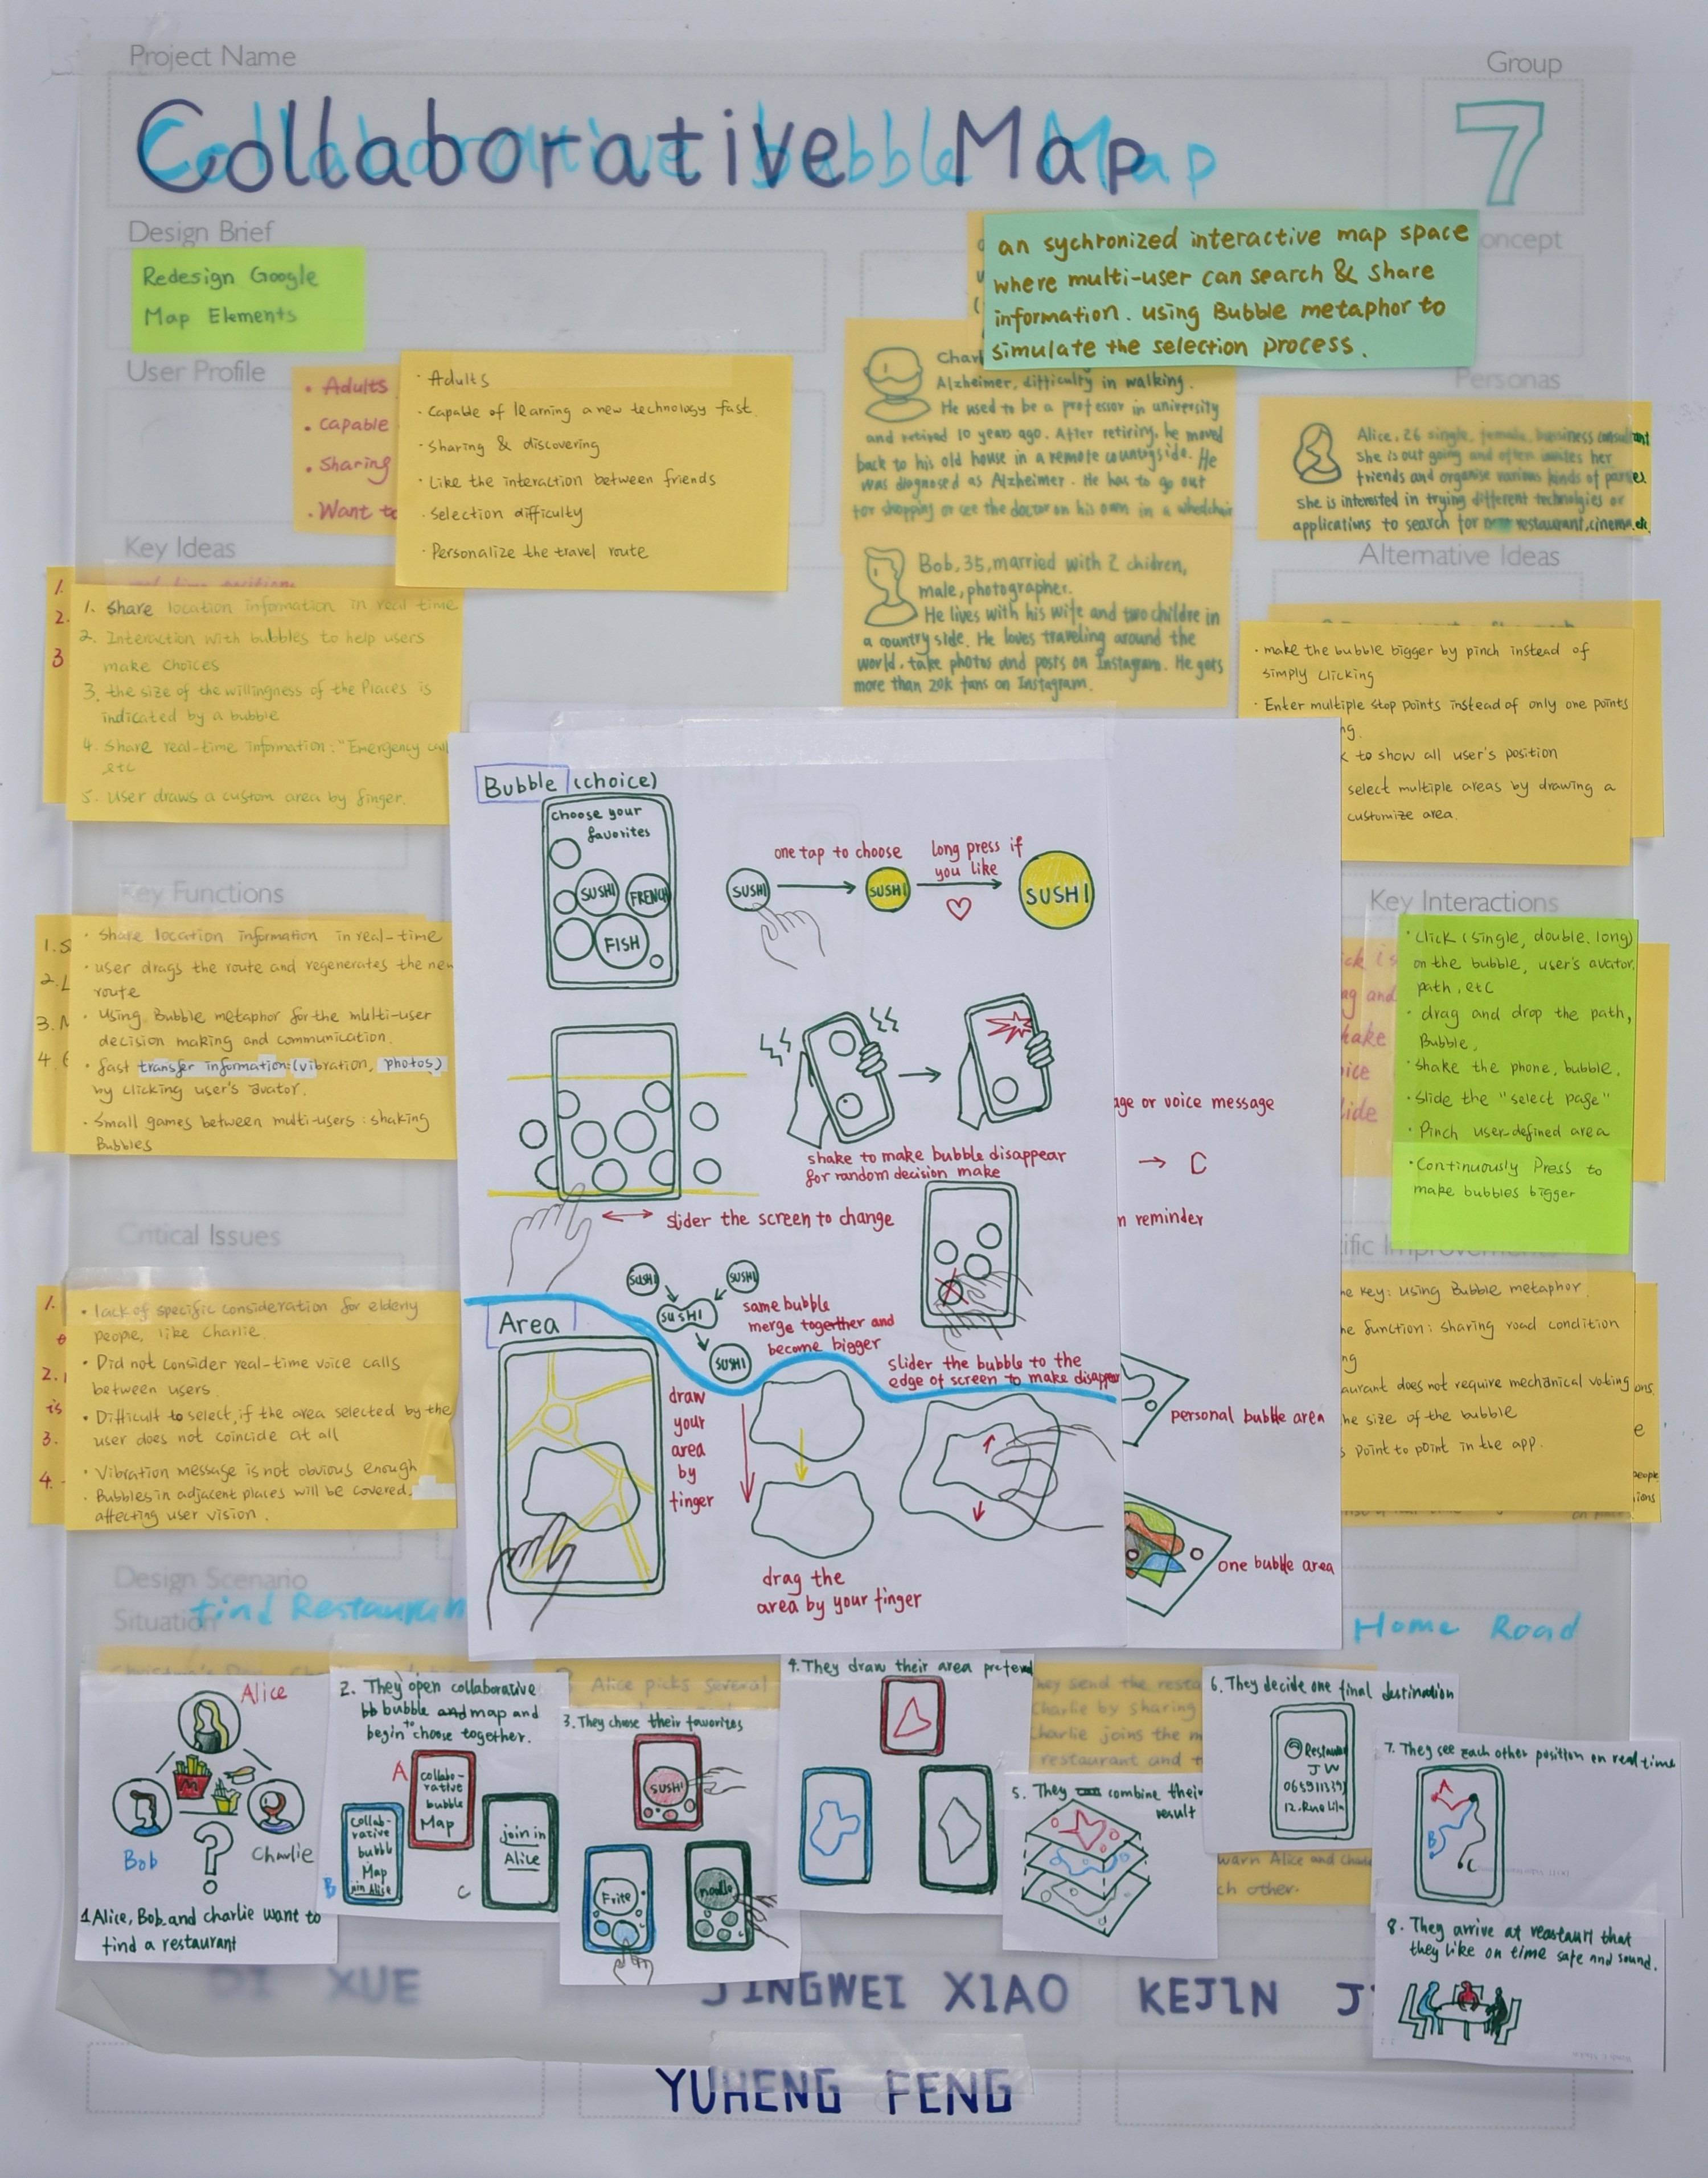 Project Name
Group
Collaborative Map
Collaborative bubble Map
7
Design Brief
Redesign Google
Map Elements
oncept
an sychronized interactive map space
where multi-user can search & share
information. using Bubble metaphor to
simulate the selection process.
User Profile
• Adults
• capable
• Sharing
• Want to
· Adults
· Capable of learning a new technology fast.
· Sharing & discovering
· Like the interaction between friends
· Selection difficulty
· Personalize the travel route
Personas
Alzheimer, difficulty in walking.
He used to be a professor in university
and retired 10 years ago. After retiring, he moved
back to his old house in a remote countryside. He
was diagnosed as Alzheimer. He has to go out
for shopping or see the doctor on his own in a wheelchair
Bob, 35, married with 2 chidren,
male, photographer.
He lives with his wife and two childre in
a country side. He loves traveling around the
world. take photos and posts on Instagram. He gets
more than 20k fans on Instagram.
Alice, 26 single, female, bussiness consultant
she is out going and often invites her
friends and organise various kinds of parties
she is interested in trying different technolgies or
applications to search for new restaurant, cinema, etc
Key Ideas
1.
2.
3
1. Share location information in real time
2. Interaction with bubbles to help users
make choices
3. the size of the willingness of the Places is
indicated by a bubble
4. Share real-time information: "Emergency call
etc
5. User draws a custom area by finger.
Alternative Ideas
· make the bubble bigger by pinch instead of
simply clicking
· Enter multiple stop points instead of only one points
ng.
k to show all user's position
select multiple areas by drawing a
customize area.
Key Functions
1. S
2. L
3. M
4.
· Share location information in real-time
· user drags the route and regenerates the new
route
· Using Bubble metaphor for the multi-user
decision making and communication.
· fast transfer information: (vibration, photos)
by clicking user's avator.
· Small games between multi-users: shaking
Bubbles
Key Interactions
ck is
ag and
hake
oice
lide
· click (single, double, long)
on the bubble, user's avator,
path, etc
· drag and drop the path,
Bubble.
· Shake the phone, bubble.
· Slide the "select page"
· Pinch user-defined area
· Continuously Press to
make bubbles bigger
Critical Issues
1.
2.
is
3.
4.
• lack of specific consideration for elderly
people, like Charlie.
• Did not consider real-time voice calls
between users.
• Difficult to select, if the area selected by the
user does not coincide at all
• Vibration message is not obvious enough
• Bubbles in adjacent places will be covered,
affecting user vision.
ific Improvemen
he key: using Bubble metaphor
he function: sharing road condition
ng
aurant does not require mechanical voting
he size of the bubble
s point to point in the app.
ons.
e
people
ions
Bubble (choice)
choose your
favorites
SUSHI
FRENCH
FISH
one tap to choose
long press if
you like
SUSHI
SUSHI
SUSHI
shake to make bubble disappear
for random decision make
slider the screen to change
SUSHI
SUSHI
SUSHI
SUSHI
same bubble
merge together and
become bigger
slider the bubble to the
edge of screen to make disappear
age or voice message
→ C
n reminder
Area
draw
your
area
by
finger
drag the
area by your finger
personal bubble area
one bubble area
Design Scenario
Situation
find Restauran
Home Road
Alice
Bob
Charlie
?
1 Alice, Bob and charlie want to
find a restaurant
2. They open collaborative
bb bubble and map and
begin to choose together.
A
collabo-
rative
bubble
Map
B
Collab-
rative
bubbl
Map
join Alice
C
join in
Alice
Alice picks several
3. They chose their favorites
SUSHI
Frite
noodle
4. They draw their area prefered
hey send the resta
Charlie by sharing
Charlie joins the m
restaurant and t
5. They can combine their
result
6. They decide one final destination
Restau
JW
12. Rue Lila
warn Alice and Cha
ch other.
7. They see each other position on real time
A
B
C
8. They arrive at reastaurt that
they like on time safe and sound.
DI XUE
JINGWEI XIAO
KEJIN J
YUHENG FENG